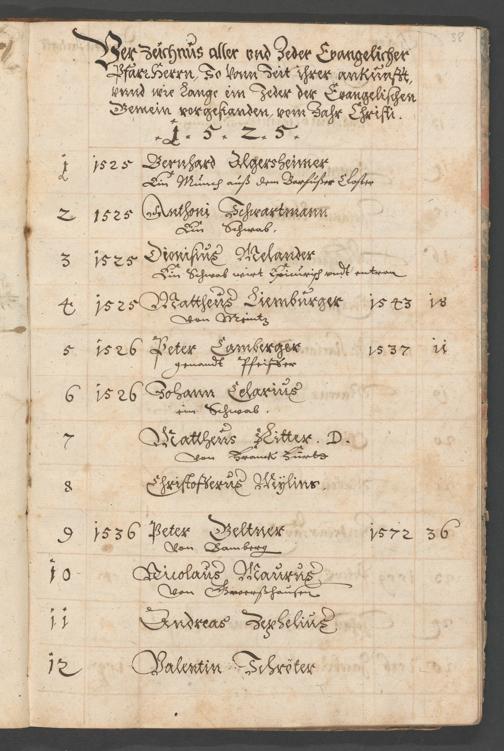 38
Verzeichnüs aller vnd Jeder Evangelischer
PfarrHerrn, So vonn Zeit ihrer ankunfft,
vnnd wie lange ein Jeder der Evangelischen
Gemein vorgestanden, vom Jahr Christi.
.1.5.2.5.
1 1525 Bernhard Algersheimer
Ein Münch auß dem Barfüßer Closter
2 1525 Anthoni Schwartmann
Ein Schwab.
3 1525 Dionisius Melander
Ein Schwab wirt
4 1525 Mattheus Limburger 1543 18
von Meintz
5 1526 Peter Camberger 1537 11
genandt Pfeiffer
6 1526 Johann Celarius
ein Schwab.
7 Mattheus Ritter. D.
von Franckfurt
8 Christofferus Mylius.
9 1536 Peter Geltner 1572 36
von Bamberg
10 Nicolaus Maurus
von
11 Andreas Zephelius
12 Valentin Schröter